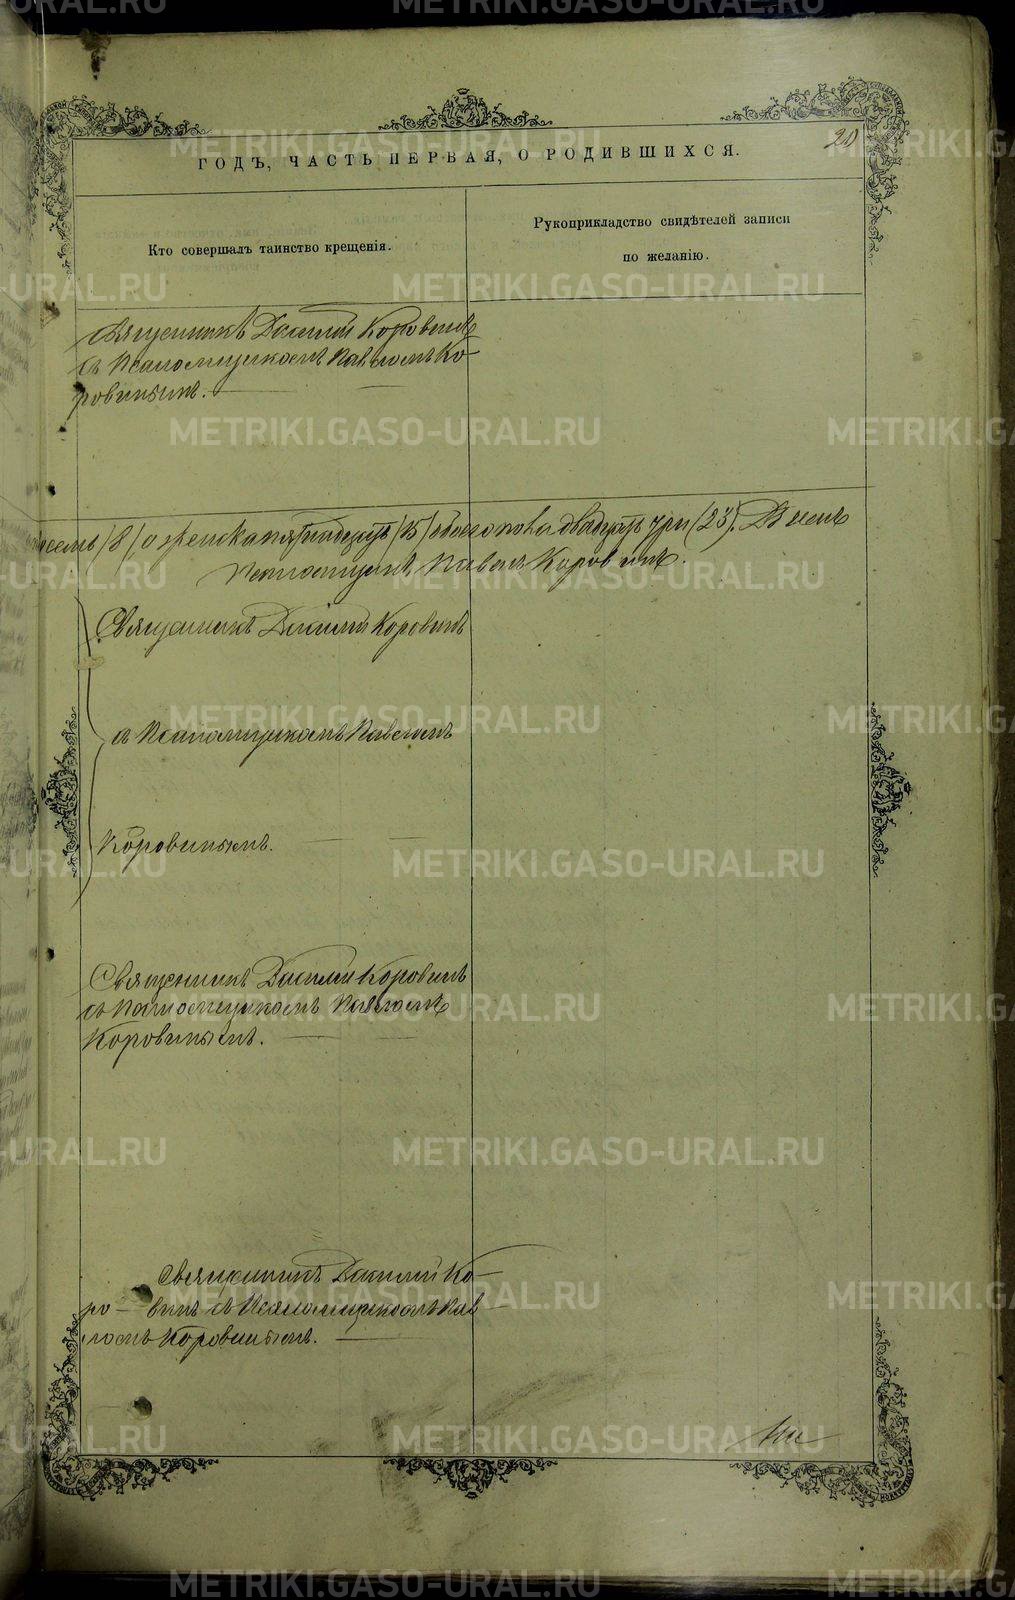 20
ГОДЪ, ЧАСТЬ ПЕРВАЯ, О РОДИВШИХСЯ.
Кто совершалъ таинство крещенія.
Рукоприкладство свидѣтелей записи
по желанію.
Священникъ Василій Коровинъ
съ Псаломщикомъ Павломъ Ко-
ровинымъ.
восемь /8/, а женска пятнадцать /15/ обоего пола двадцать три (23). В семъ
Псаломщикъ Павелъ Коровинъ.
Священникъ Василій Коровинъ
съ Псаломщикомъ Павломъ
Коровинымъ.
Священникъ Василій Коровинъ
съ Псаломщикомъ Павломъ
Коровинымъ.
Священникъ Василій Ко-
ро-винъ съ Псаломщикомъ Пав-
ломъ Коровинымъ.
METRIKI.GASO-URAL.RU